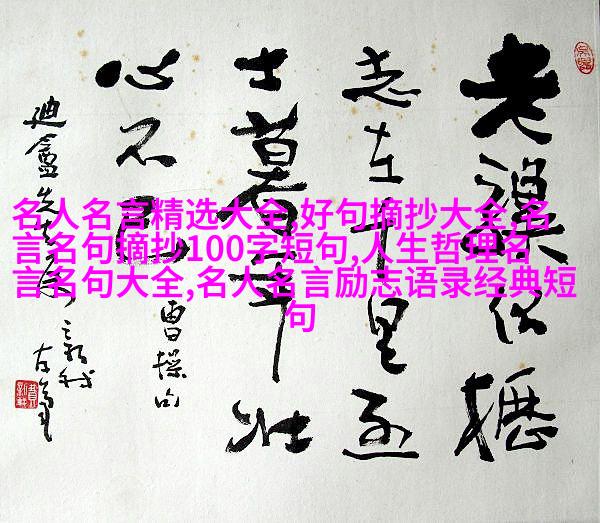 老驥伏櫪
志在千里烈
士暮年壮
心不已
曹操句
迪盦先生
名人名言精选大全,好句摘抄大全 名
言名句摘抄100字短句,人生哲理名
言名句大全,名人名言励志语录经典短
句